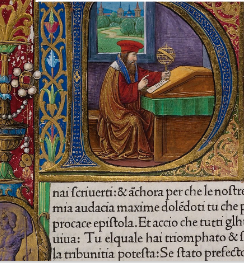 nai scriuerti: & ãchora per che le nostre
mia audacia maxime dolẽdoti tu che p
procace epistola. Et accio che tutti glh
uiua: Tu elquale hai triomphato & s
la tribunitia potesta: Se stato prefecto